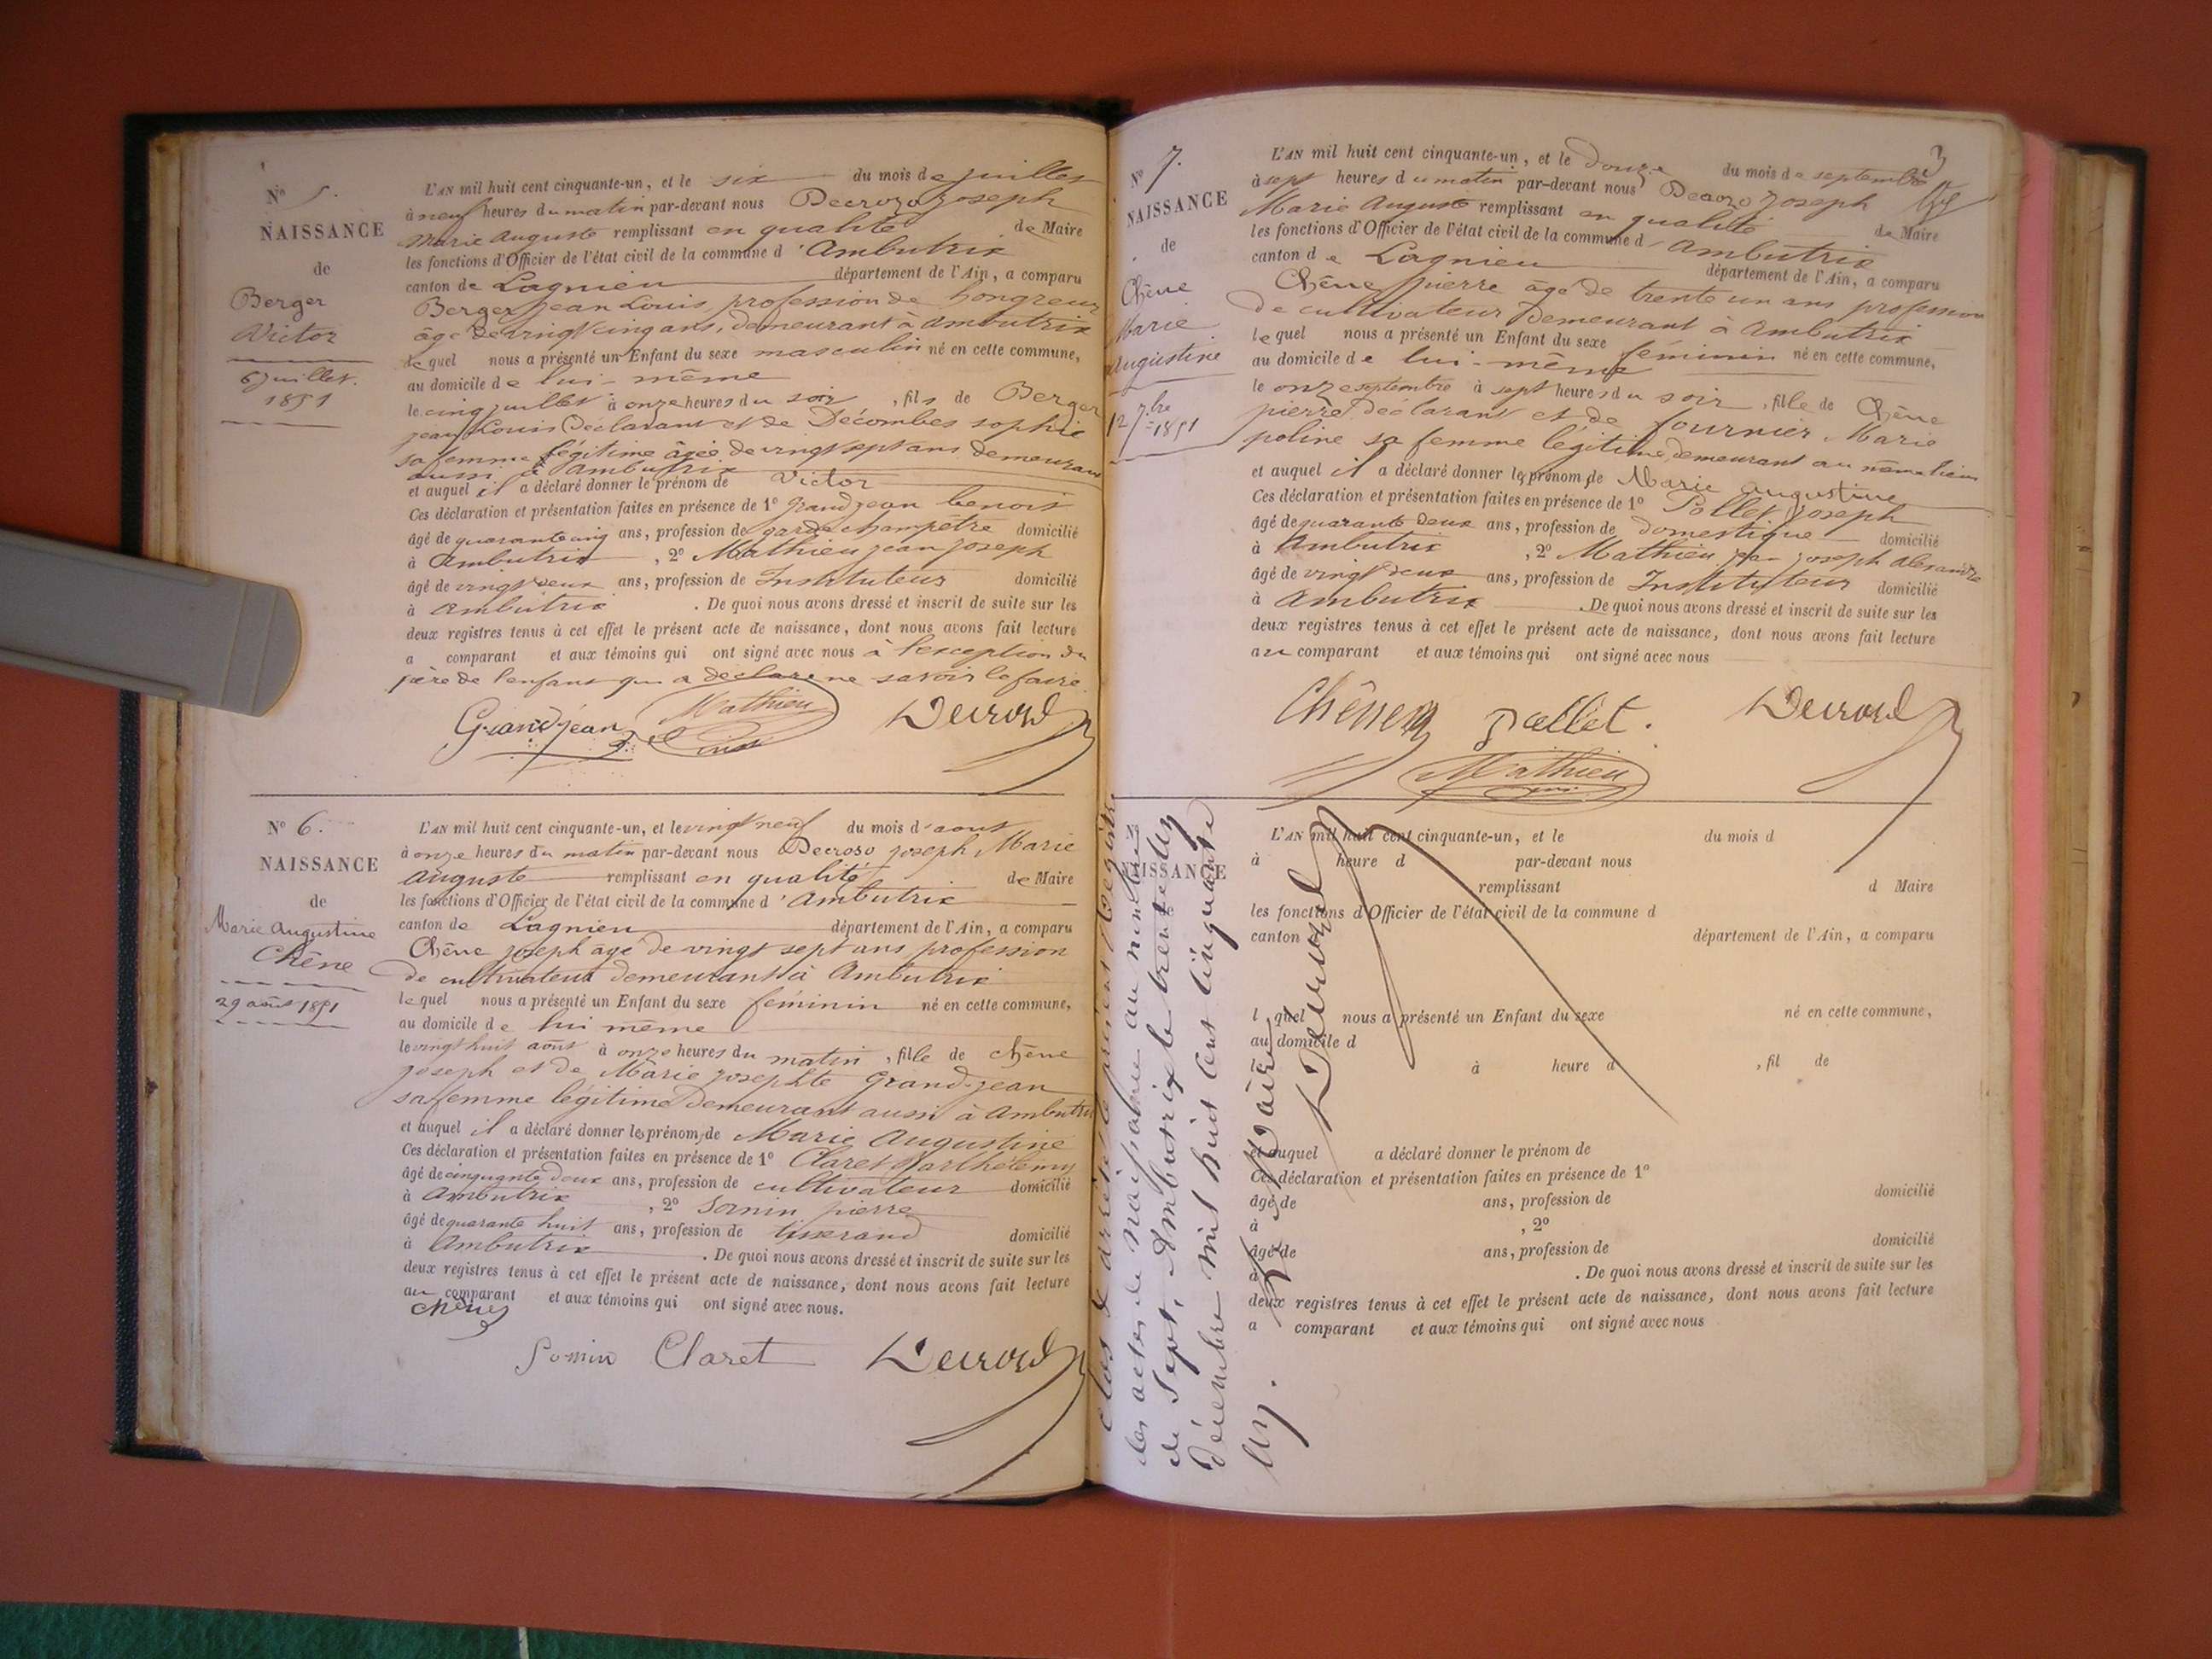 N° 5.
NAISSANCE
de
Berger
Victor
6 juillet.
1851
L'AN mil huit cent cinquante-un, et le six du mois de juillet
à neuf heures du matin par-devant nous Decrozo joseph
Marie Auguste remplissant en qualité de Maire
les fonctions d'Officier de l'état civil de la commune d'Ambutrix
canton de Lagnieu département de l'Ain, a comparu
Berger jean Louis profession de hongreur
âgé de vingt cinq ans, demeurant à Ambutrix
lequel nous a présenté un Enfant du sexe masculin né en cette commune,
au domicile de lui-même
le cinq juillet à onze heures du soir, fils de Berger
jean Louis Déclarant et de Décombes sophie
sa femme légitime âgée de vingt sept ans demeurant
aussi à Ambutrix
et auquel il a déclaré donner le prénom de Victor
Ces déclaration et présentation faites en présence de 1° Grandjean benoit
âgé de quarante cinq ans, profession de garde champêtre domicilié
à Ambutrix, 2° Mathieu jean joseph
âgé de vingt deux ans, profession de Instituteur domicilié
à Ambutrix. De quoi nous avons dressé et inscrit de suite sur les
deux registres tenus à cet effet le présent acte de naissance, dont nous avons fait lecture
a comparant et aux témoins qui ont signé avec nous à l'exception du
père de l'enfant qui a déclaré ne savoir le faire.
Grandjean Mathieu Decrozo
N° 6.
NAISSANCE
de
Marie Augustine
Chêne
29 août 1851
L'AN mil huit cent cinquante-un, et le vingt neuf du mois d'aout
à onze heures du matin par-devant nous Decrozo joseph Marie
Auguste remplissant en qualité de Maire
les fonctions d'Officier de l'état civil de la commune d'Ambutrix
canton de Lagnieu département de l'Ain, a comparu
Chêne joseph âgé de vingt sept ans profession
de cultivateur demeurant à Ambutrix
lequel nous a présenté un Enfant du sexe féminin né en cette commune,
au domicile de lui même
le vingt huit août à onze heures du matin, fille de Chêne
joseph et de Marie josephte Grand-jean
sa femme légitime Demeurant aussi à Ambutrix
et auquel il a déclaré donner les prénom de Marie Augustine
Ces déclaration et présentation faites en présence de 1° Claret Barthélemy
âgé de cinquante deux ans, profession de cultivateur domicilié
à Ambutrix, 2° Somin pierre
âgé de quarante huit ans, profession de tisserand domicilié
à Ambutrix. De quoi nous avons dressé et inscrit de suite sur les
deux registres tenus à cet effet le présent acte de naissance, dont nous avons fait lecture
au comparant et aux témoins qui ont signé avec nous.
Chêne
Somin Claret Decrozo
3
N° 7.
NAISSANCE
de
Chêne
Marie
Augustine
12 7bre 1851
L'AN mil huit cent cinquante-un, et le Douze du mois de septembre
à sept heures du matin par-devant nous Decrozo joseph
Marie Auguste remplissant en qualité de Maire
les fonctions d'Officier de l'état civil de la commune d'Ambutrix
canton de Lagnieu département de l'Ain, a comparu
Chêne pierre âgé de trente un ans profession
de cultivateur Demeurant à Ambutrix
lequel nous a présenté un Enfant du sexe féminin né en cette commune,
au domicile de lui-même
le onze septembre à sept heures du soir, fille de Chêne
pierre déclarant et de fournier Marie
poline sa femme légitime, demeurant au même lieu
et auquel il a déclaré donner les prénom de Marie augustine
Ces déclaration et présentation faites en présence de 1° Pollet joseph
âgé de quarante deux ans, profession de domestique domicilié
à Ambutrix, 2° Mathieu jean joseph Alexandre
âgé de vingt deux ans, profession de Instituteur domicilié
à Ambutrix. De quoi nous avons dressé et inscrit de suite sur les
deux registres tenus à cet effet le présent acte de naissance, dont nous avons fait lecture
au comparant et aux témoins qui ont signé avec nous
Chêne pallet. Decrozo
Mathieu
N°
NAISSANCE
L'AN mil huit cent cinquante-un, et le du mois d
à heure d par-devant nous
remplissant d Maire
les fonctions d'Officier de l'état civil de la commune d
canton département de l'Ain, a comparu
l quel nous a présenté un Enfant du sexe né en cette commune,
au domicile d
à heure d, fil de
et auquel a déclaré donner le prénom de
Ces déclaration et présentation faites en présence de 1°
âgé de ans, profession de domicilié
à, 2°
âgé de ans, profession de domicilié
à. De quoi nous avons dressé et inscrit de suite sur les
deux registres tenus à cet effet le présent acte de naissance, dont nous avons fait lecture
a comparant et aux témoins qui ont signé avec nous
Clos & arrêté le présent Registre
des actes de naissance au nombre
de Sept, Ambutrix le trente un
Décembre mil huit cent cinquante
un. Le Maire
Decrozo